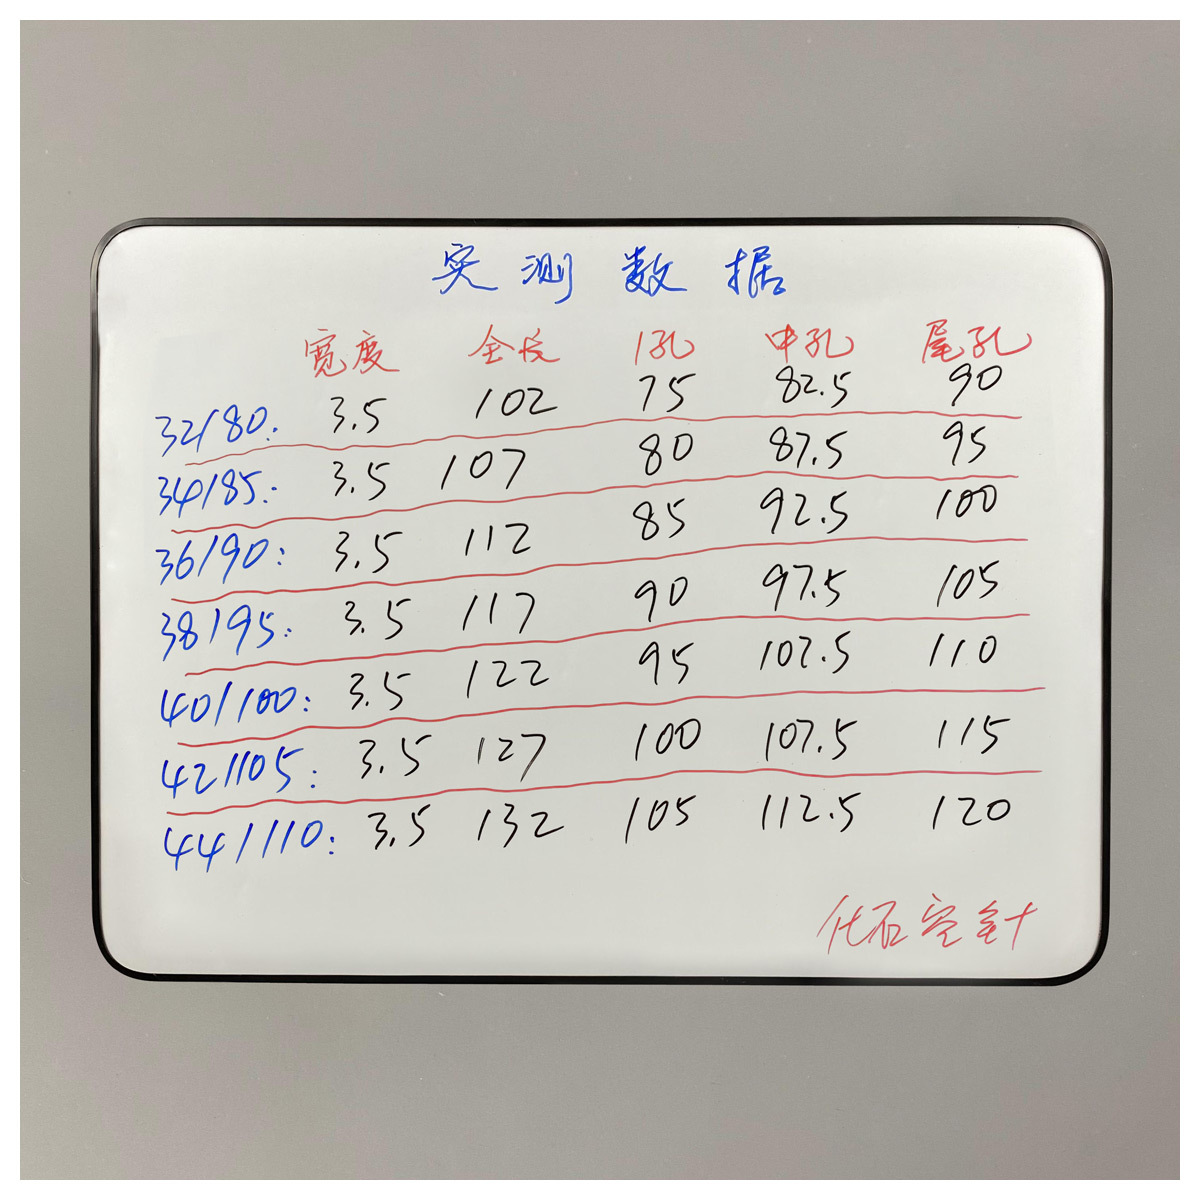 实测数据
宽度 全长 1孔 中孔 尾孔
32/80: 3.5 102 75 82.5 90
34/85: 3.5 107 80 87.5 95
36/90: 3.5 112 85 92.5 100
38/95: 3.5 117 90 97.5 105
40/100: 3.5 122 95 102.5 110
42/105: 3.5 127 100 107.5 115
44/110: 3.5 132 105 112.5 120
化石空针